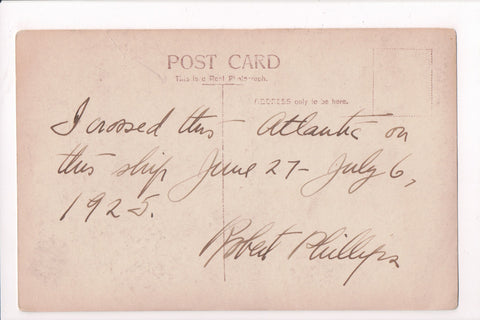 POST CARD
This is a Real Photograph.
ADDRESS only to be here.
I crossed this Atlantic on
this ship June 27 - July 6,
1925.
Robert Phillips